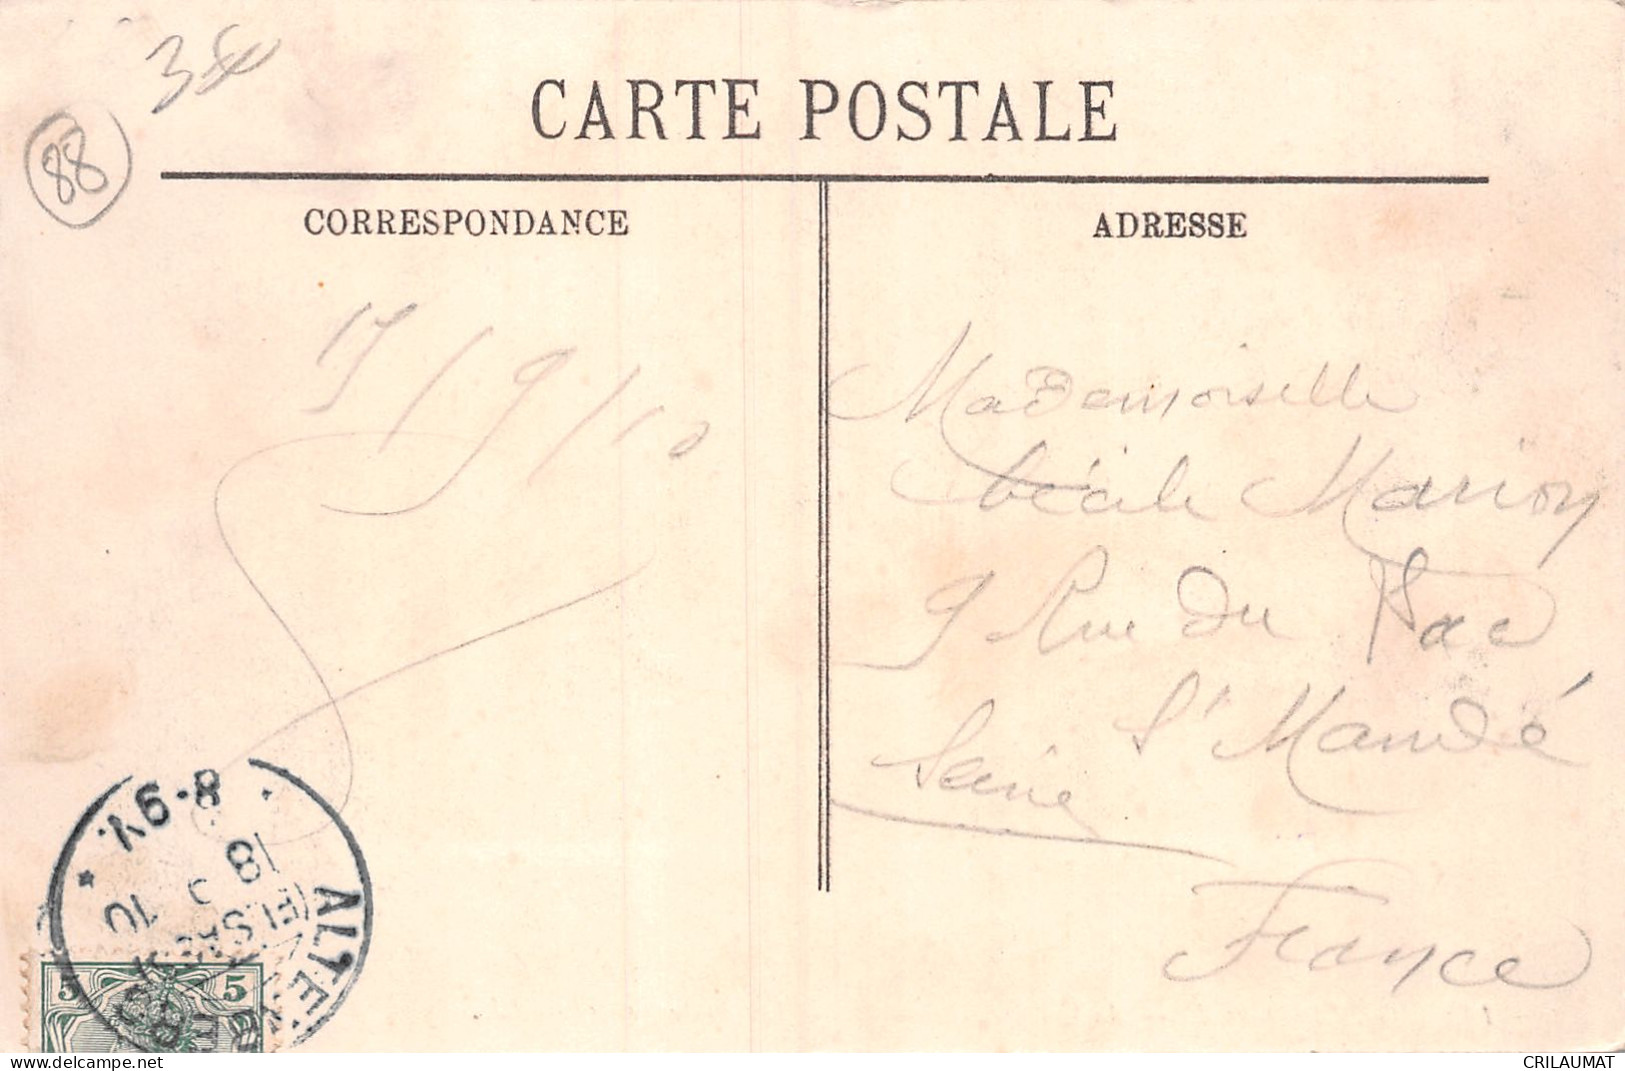 38
88
CARTE POSTALE
CORRESPONDANCE
ADRESSE
17/9/10
Mademoiselle
Cécile Marion
9 Rue du Parc
St Mandé
Seine
France
8-9V.
18 9 10
(ELSASS)
5 5
www.delcampe.net
CRILAUMAT